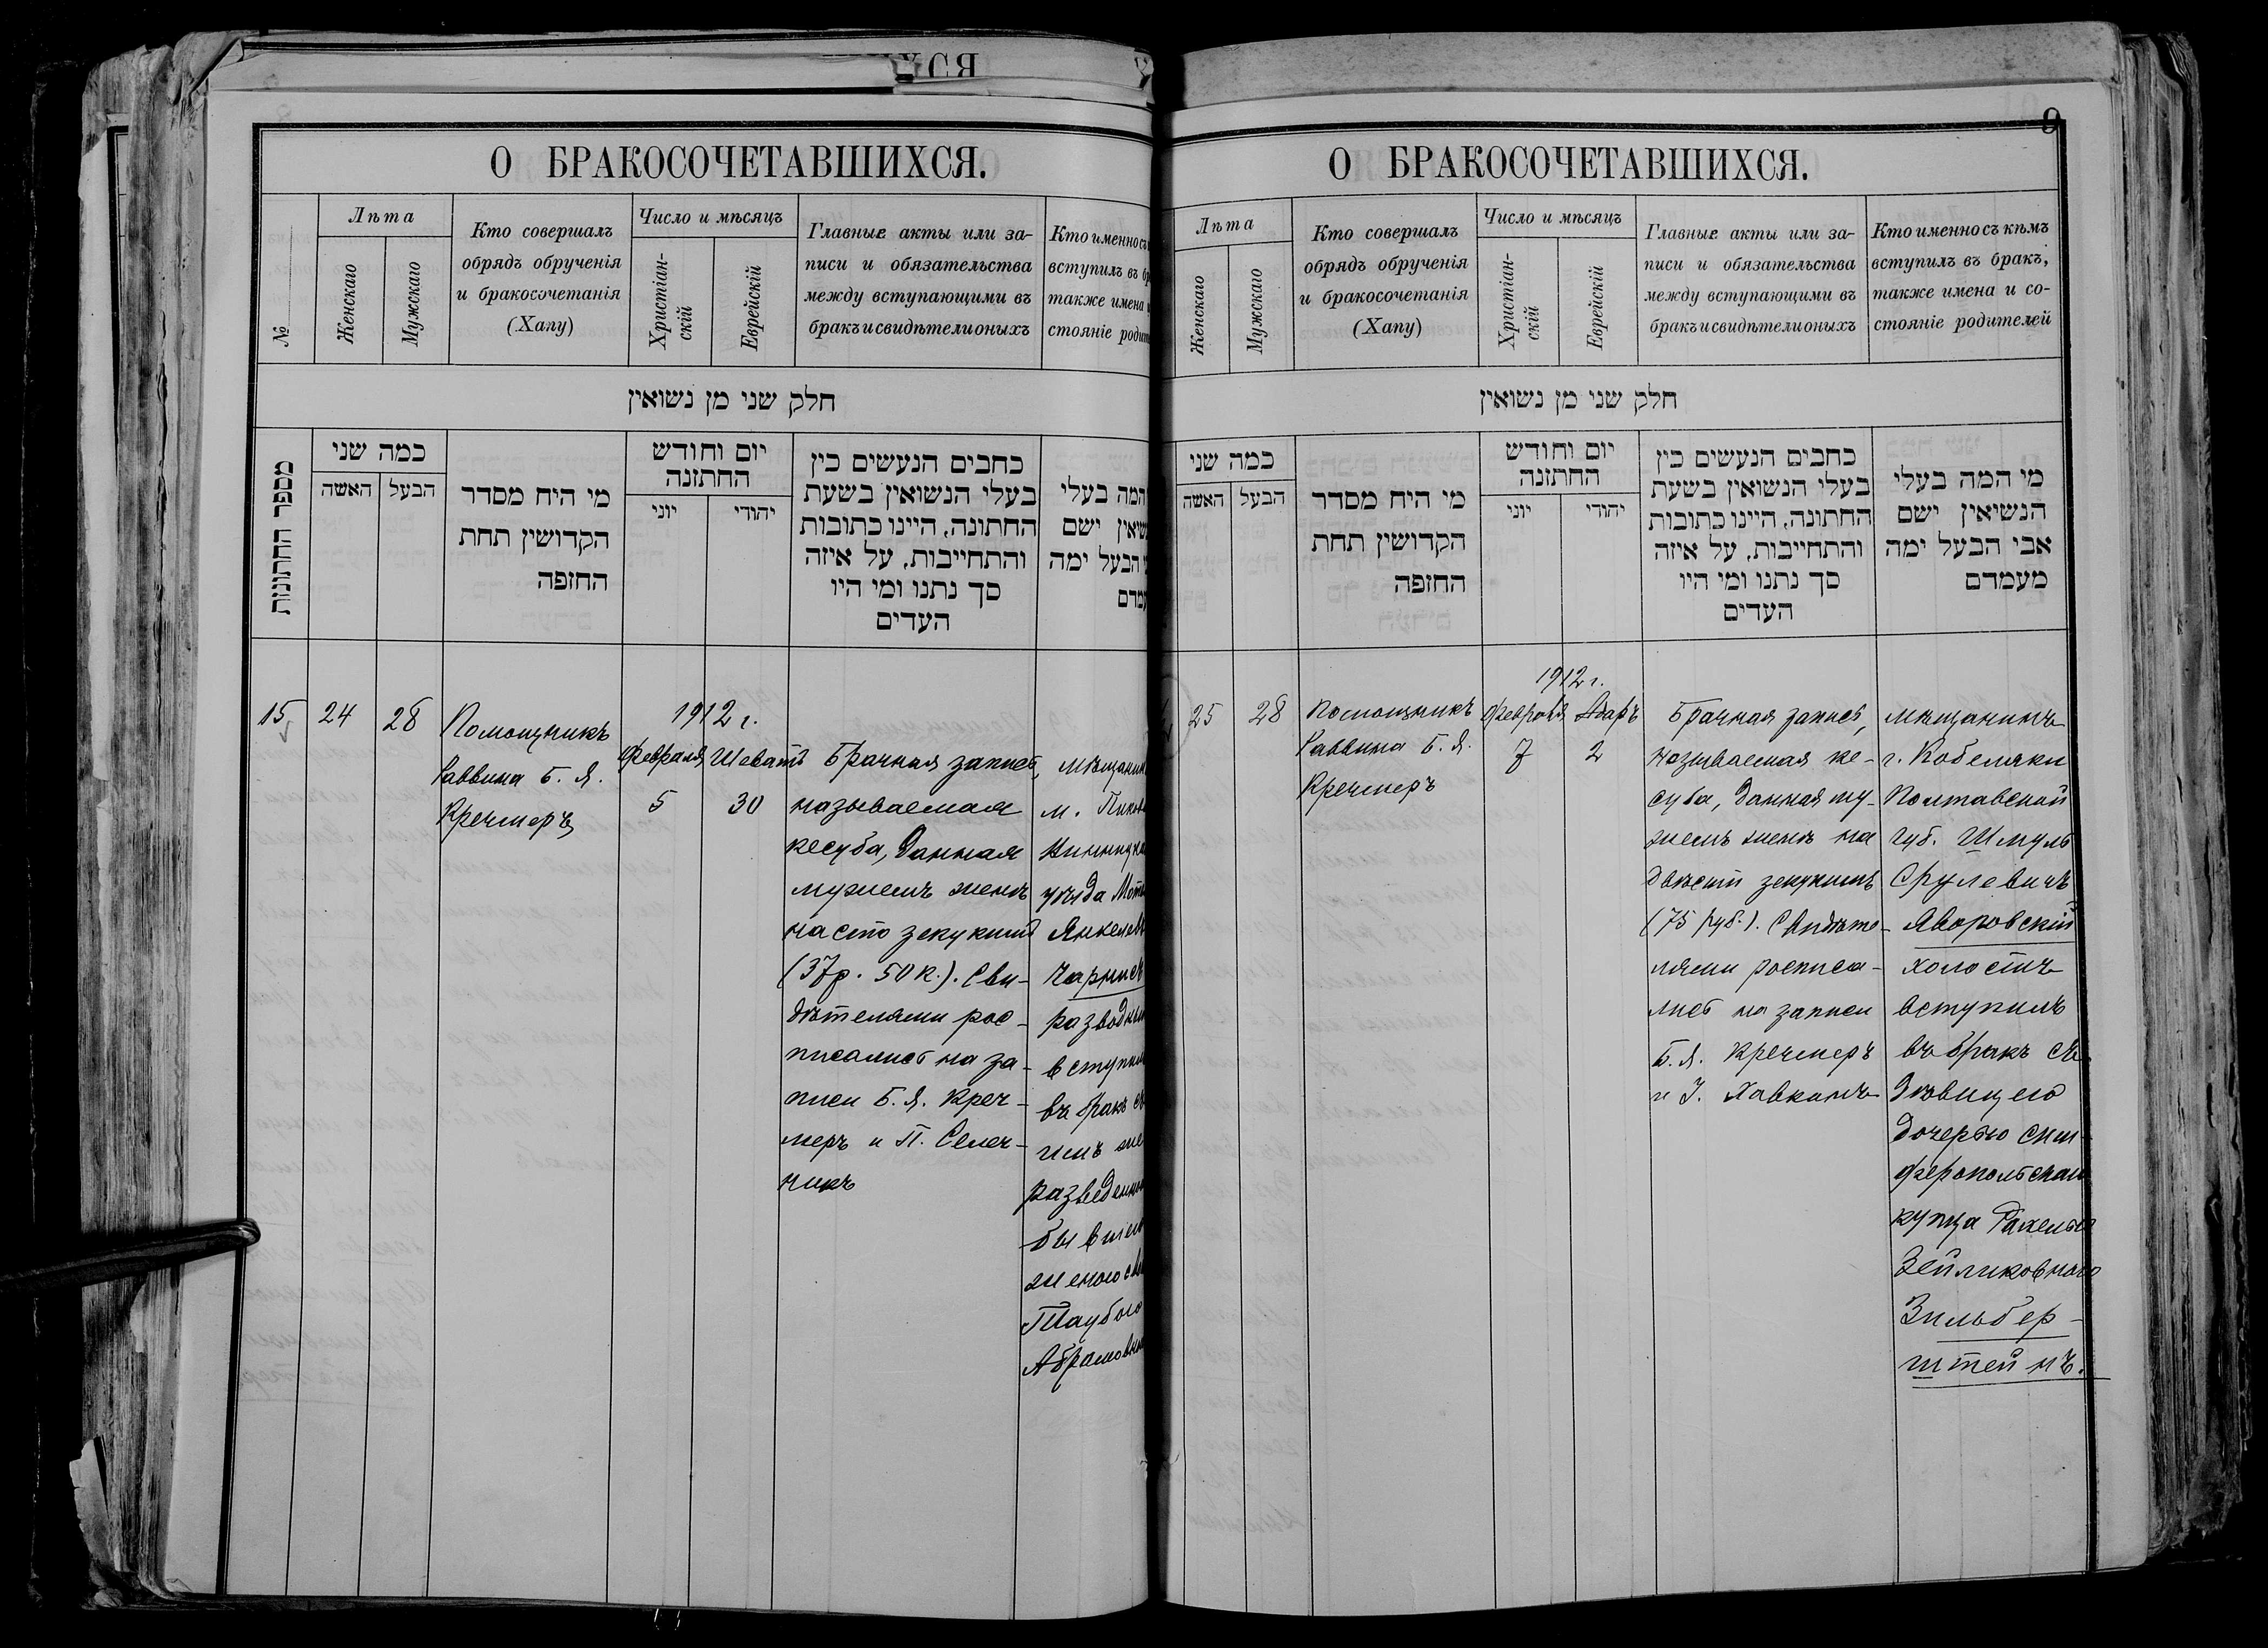 О БРАКОСОЧЕТАВШИХСЯ.
№
Лѣта
Женскаго
Мужскаго
Кто совершалъ
обрядъ обрученія
и бракосочетанія
(Хапу)
Число и мѣсяцъ
Христіан-
скій
Еврейскій
Главные акты или за-
писи и обязательства
между вступающими въ
бракъ и свидѣтели оныхъ
Кто именно съ
вступилъ въ бр
также имена и
стояніе родит
חלק שני מן נשואין
מספר החתונות
כמה שני
האשה
הבעל
מי היח מסדר
הקדושין תחת
החזפה
יום וחודש
החתזנה
יוני
יהודי
כחבים הנעשים כין
בעלי הנשואין בשעת
החתונה, היינו כתובות
והתחייבות, על איזה
סך נתנו ומי היו
העדים
המה בעלי
שואין ישם
הבעל ימה
עמדם
15
24
28
Помощникъ
Раввина Б. Я.
Кречмеръ
1912 г.
Февраля
5
Шеватъ
30
Брачная запись,
называемая
кесуба, данная
мужемъ женѣ
на сто зекукимъ
(37р. 50 к.). Сви-
дѣтелями рос-
писались на за-
писи Б. Я. Креч-
меръ и П. Селеч-
никъ
мѣщанин
м. Пиков
Винницка
уѣзда Мот
Янкелев
Чарные
разводны
вступил
въ бракъ съ
разведенно
бывшей
женою св
Таубою
Абрамовн
О БРАКОСОЧЕТАВШИХСЯ.
9
Лѣта
Женскаго
Мужскаго
Кто совершалъ
обрядъ обрученія
и бракосочетанія
(Хапу)
Число и мѣсяцъ
Христіан-
скій
Еврейскій
Главные акты или за-
писи и обязательства
между вступающими въ
бракъ и свидѣтели оныхъ
Кто именно съ кѣмъ
вступилъ въ бракъ,
также имена и со-
стояніе родителей
חלק שני מן נשואין
כמה שני
האשה
הבעל
מי היח מסדר
הקדושין תחת
החזפה
יום וחודש
החתזנה
יוני
יהודי
כחבים הנעשים כין
בעלי הנשואין בשעת
החתונה, היינו כתובות
והתחייבות, על איזה
סך נתנו ומי היו
העדים
מי המה בעלי
הנשיאין ישם
אבי הבעל ימה
מעמדם
25
28
Помощникъ
Раввина Б. Я.
Кречмеръ
1912 г.
Февраля
7
Адаръ
2
Брачная запись,
называемая ке-
суба, данная му-
жемъ женѣ на
двѣсти зекукимъ
(75 руб.). Свидѣте-
лями росписа-
лись на записи
Б. Я. Кречмеръ
и І. Хавкинъ
мѣщанинъ
г. Кобеляки
Полтавской
губ. Шмуль
Срулевичъ
Яворовскій
холостъ
вступилъ
въ бракъ съ
дѣвицею
дочерью сим-
феропольскаго
купца Рахелью
Зейликовною
Зильбер-
штейнъ.